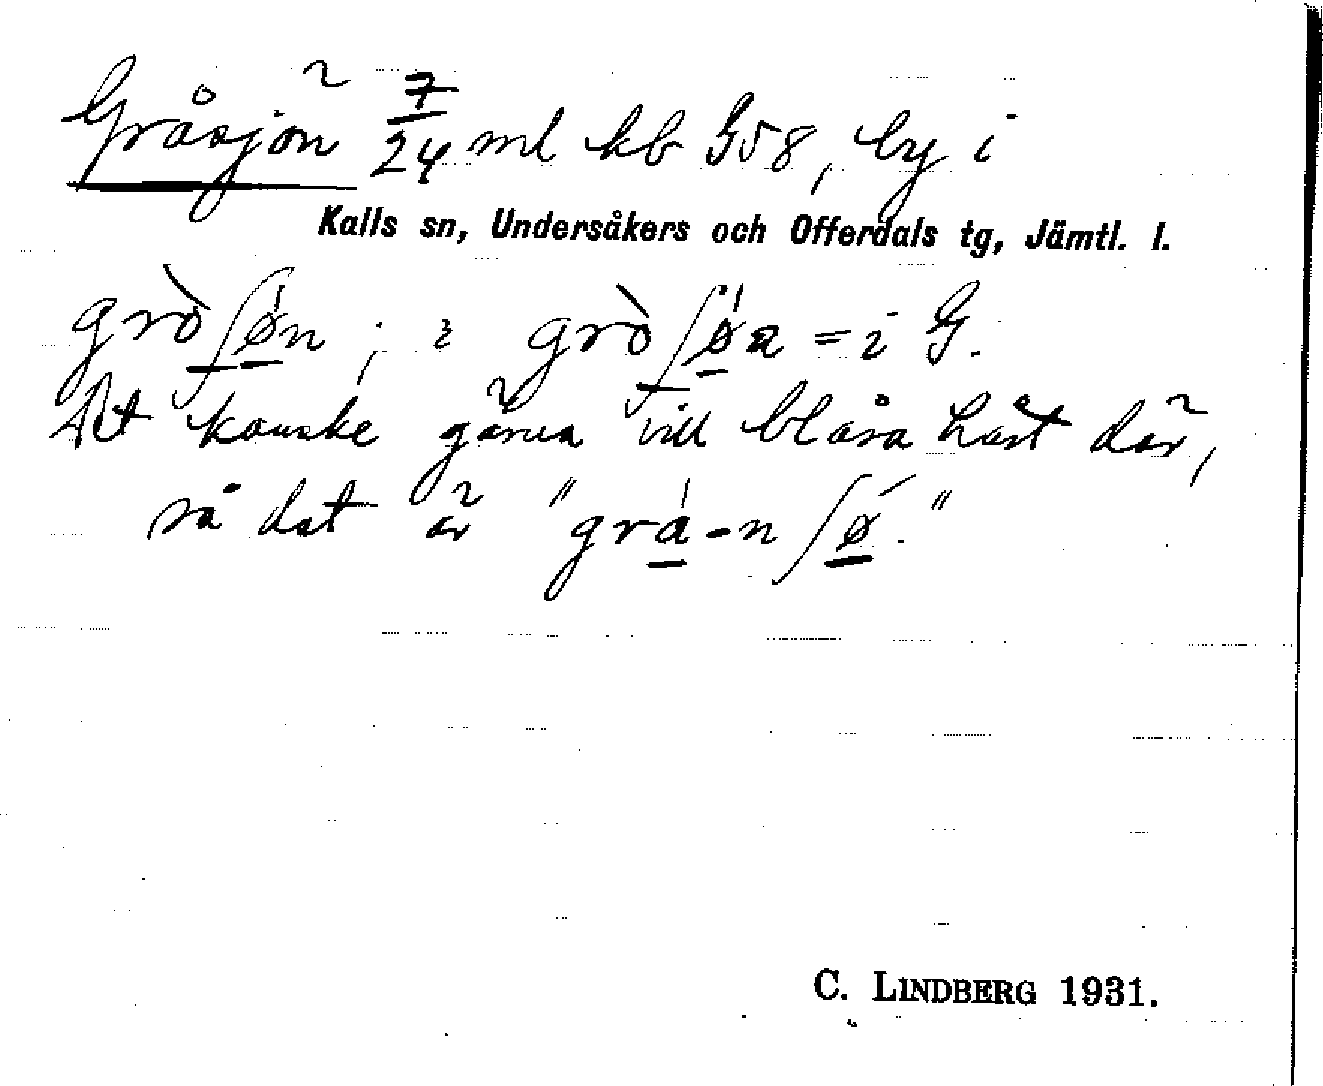 Gråsjön 7/24 ml kb G58, by i
Kalls sn, Undersåkers och Offerdals tg, Jämtl. l.
gròʃøn ; i gròʃøa = i G.
Det kanske gärna vill blåsa hårt där,
så det är "grá-nʃǿ."
C. LINDBERG 1931.